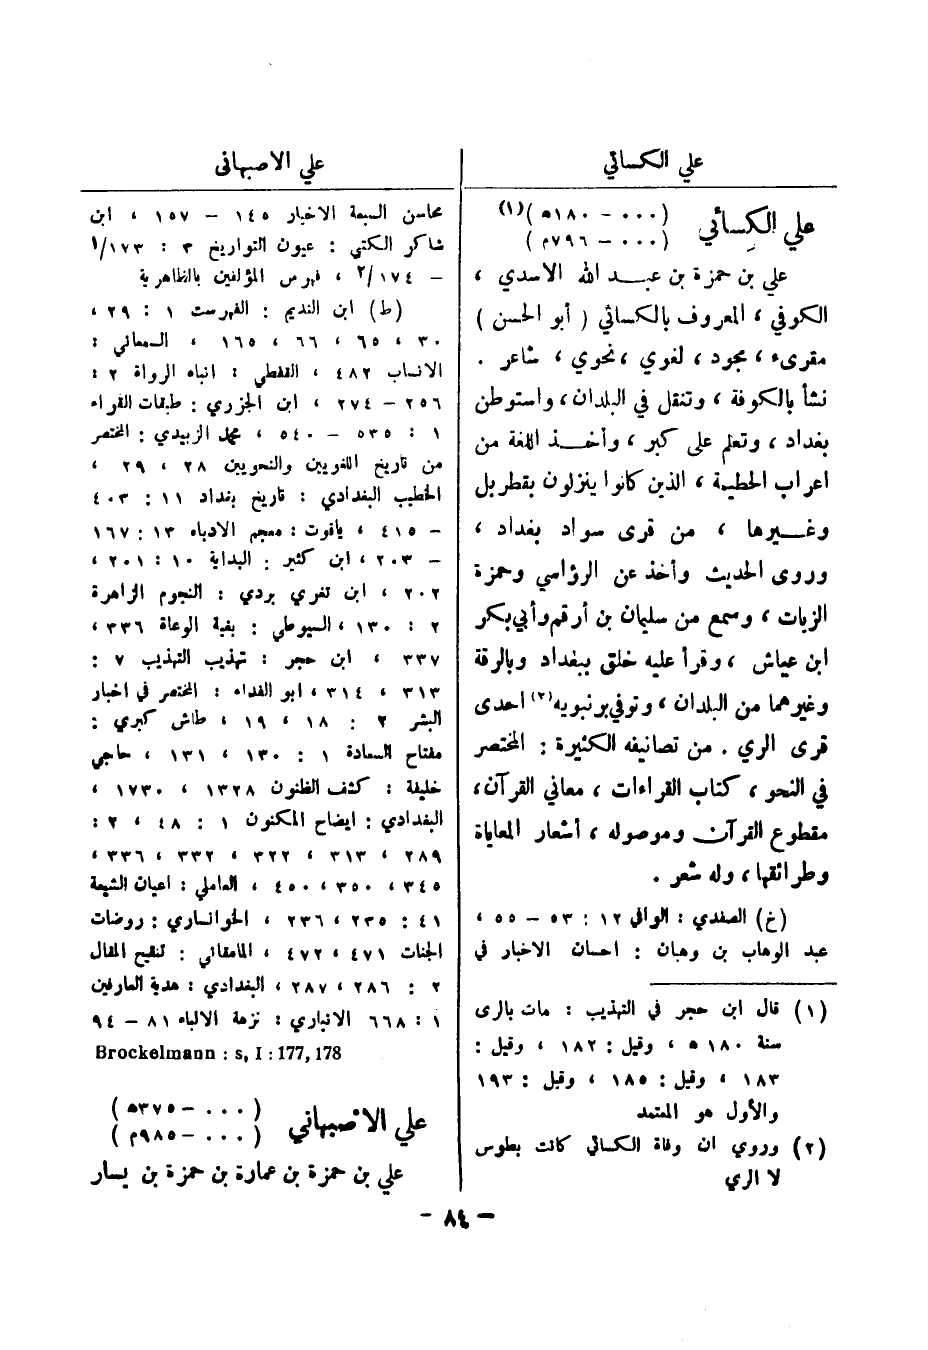 علي الكسائي
علي الكسائي ( ٠٠٠ - ١٨٠ هـ )(١)
( ٠٠٠ - ٧٩٦ م )
علي بن حمزة بن عبد الله الاسدي ،
الكوفي ، المعروف بالكسائي ( أبو الحسن )
مقرىء ، مجود ، لغوي ، نحوي ، شاعر .
نشأ بالكوفة ، وتنقل في البلدان ، واستوطن
بغداد ، وتعلم على كبر ، وأخذ اللغة من
اعراب الحطمية ، الذين كانوا ينزلون بقطربل
وغيرها ، من قرى سواد بغداد ،
وروى الحديث وأخذ عن الرؤاسي وحمزة
الزيات ، وسمع من سليمان بن أرقم وأبي بكر
ابن عياش ، وقرأ عليه خلق ببغداد وبالرقة
وغيرهما من البلدان ، وتوفي برنبويه(٢) احدى
قرى الري . من تصانيفه الكثيرة : المختصر
في النحو ، كتاب القراءات ، معاني القرآن ،
مقطوع القرآن وموصوله ، أشعار المعاياة
وطرائقها ، وله شعر .
(خ) الصفدي : الوافي ١٢ : ٥٣ - ٥٥ ،
عبد الوهاب بن وهبان : احسان الاخبار في
(١) قال ابن حجر في التهذيب : مات بالرى
سنة ١٨٠ هـ ، وقيل : ١٨٢ ، وقيل :
١٨٣ ، وقيل : ١٨٥ ، وقيل : ١٩٣
والأول هو المعتمد
(٢) وروي ان وفاة الكسائي كانت بطوس
لا الري
علي الاصبهانى
محاسن السبعة الاخيار ١٤٥ - ١٥٧ ، ابن
شاكر الكتبي : عيون التواريخ ٣ : ١/١٧٣
- ٢/١٧٤ ، فهرس المؤلفين بالظاهرية
(ط) ابن النديم : الفهرست ١ : ٢٩ ،
٣٠ ، ٦٥ ، ٦٦ ، ١٦٥ ، السمعاني :
الانساب ٤٨٢ ، القفطي : انباه الرواة ٢ :
٢٥٦ - ٢٧٤ ، ابن الجزري : طبقات القراء
١ : ٥٣٥ - ٥٤٠ ، محمد الزبيدي : المختصر
من تاريخ اللغويين والنحويين ٢٨ ، ٢٩ ،
الخطيب البغدادي : تاريخ بغداد ١١ : ٤٠٣
- ٤١٥ ، ياقوت : معجم الادباء ١٣ : ١٦٧
- ٢٠٣ ، ابن كثير : البداية ١٠ : ٢٠١ ،
٢٠٢ ، ابن تغري بردي : النجوم الزاهرة
٢ : ١٣٠ ، السيوطي : بغية الوعاة ٣٣٦ ،
٣٣٧ ، ابن حجر : تهذيب التهذيب ٧ :
٣١٣ ، ٣١٤ ، ابو الفداء : المختصر في اخبار
البشر ٢ : ١٨ ، ١٩ ، طاش كبري :
مفتاح السعادة ١ : ١٣٠ ، ١٣١ ، حاجي
خليفة : كشف الظنون ١٣٢٨ ، ١٧٣٠ ،
البغدادي : ايضاح المكنون ١ : ٤٨ ، ٢ :
٢٨٩ ، ٣١٣ ، ٣٢٢ ، ٣٣٢ ، ٣٣٦ ،
٣٤٥ ، ٣٥٠ ، ٤٥٠ ، العاملي : اعيان الشيعة
٤١ : ٢٣٥ ، ٢٣٦ ، الخوانساري : روضات
الجنات ٤٧١ ، ٤٧٢ ، المامقاني : تنقيح المقال
٢ : ٢٨٦ ، ٢٨٧ ، البغدادي : هدية العارفين
١ : ٦٦٨ الانباري : نزهة الالباء ٨١ - ٩٤
Brockelmann : s, I : 177, 178
علي الاصبهاني ( ٠٠٠ - ٣٧٥ هـ )
( ٠٠٠ - ٩٨٥ م )
علي بن حمزة بن عمارة بن حمزة بن يسار
- ٨٤ -